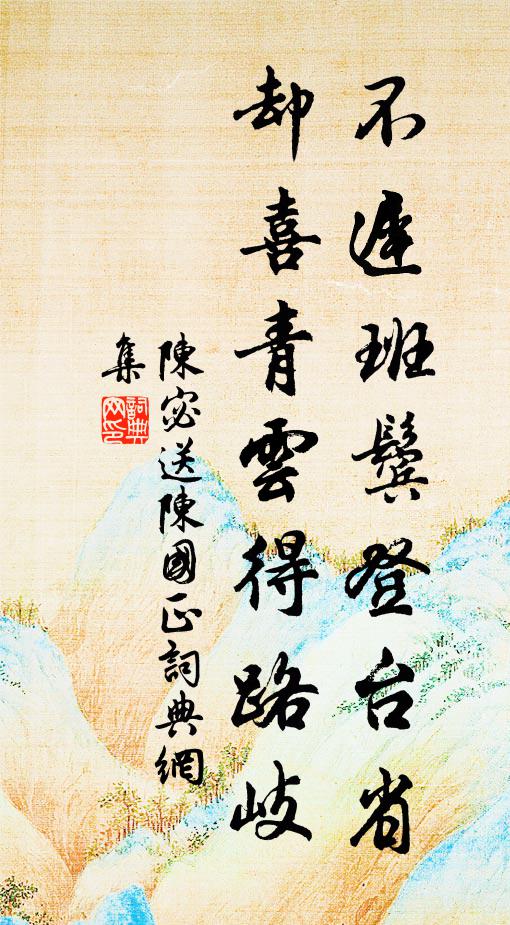 不遲班鬓登台省
却喜青雲得路岐
陳宓送陳國正詞典網
集
詞典
网印